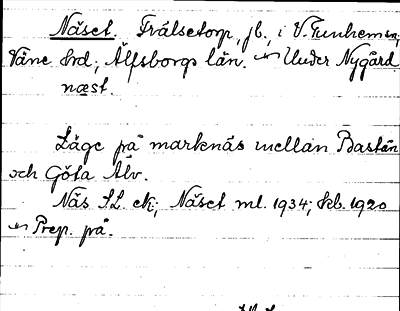 Näset. Frälsetorp, jb., i V. Tunhems sn;
Väne hrd; Älfsborgs län. Under Nygård.
næst.
Läge på marknäs mellan Bastån
och Göta Älv.
Näs SL ek; Näset ml. 1934; kb. 1920
Prep. på.